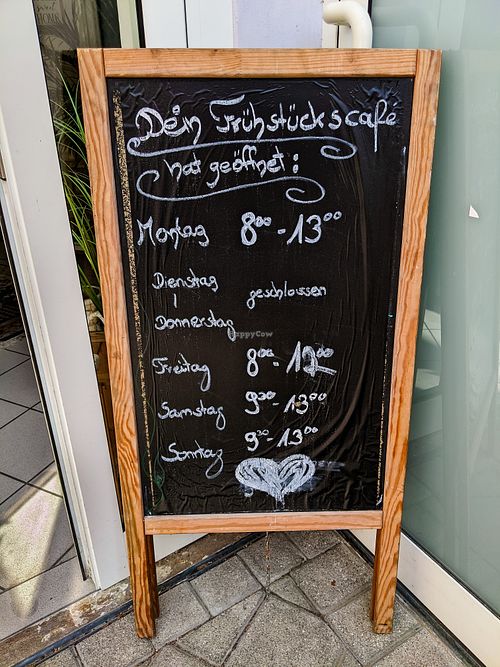 Dein Frühstückscafe
hat geöffnet:
Montag 8⁰⁰ - 13⁰⁰
Dienstag
| geschlossen
Donnerstag
HappyCow
Freitag 8⁰⁰ - 12⁰⁰
Samstag 9³⁰ - 13⁰⁰
Sonntag 9³⁰ - 13⁰⁰